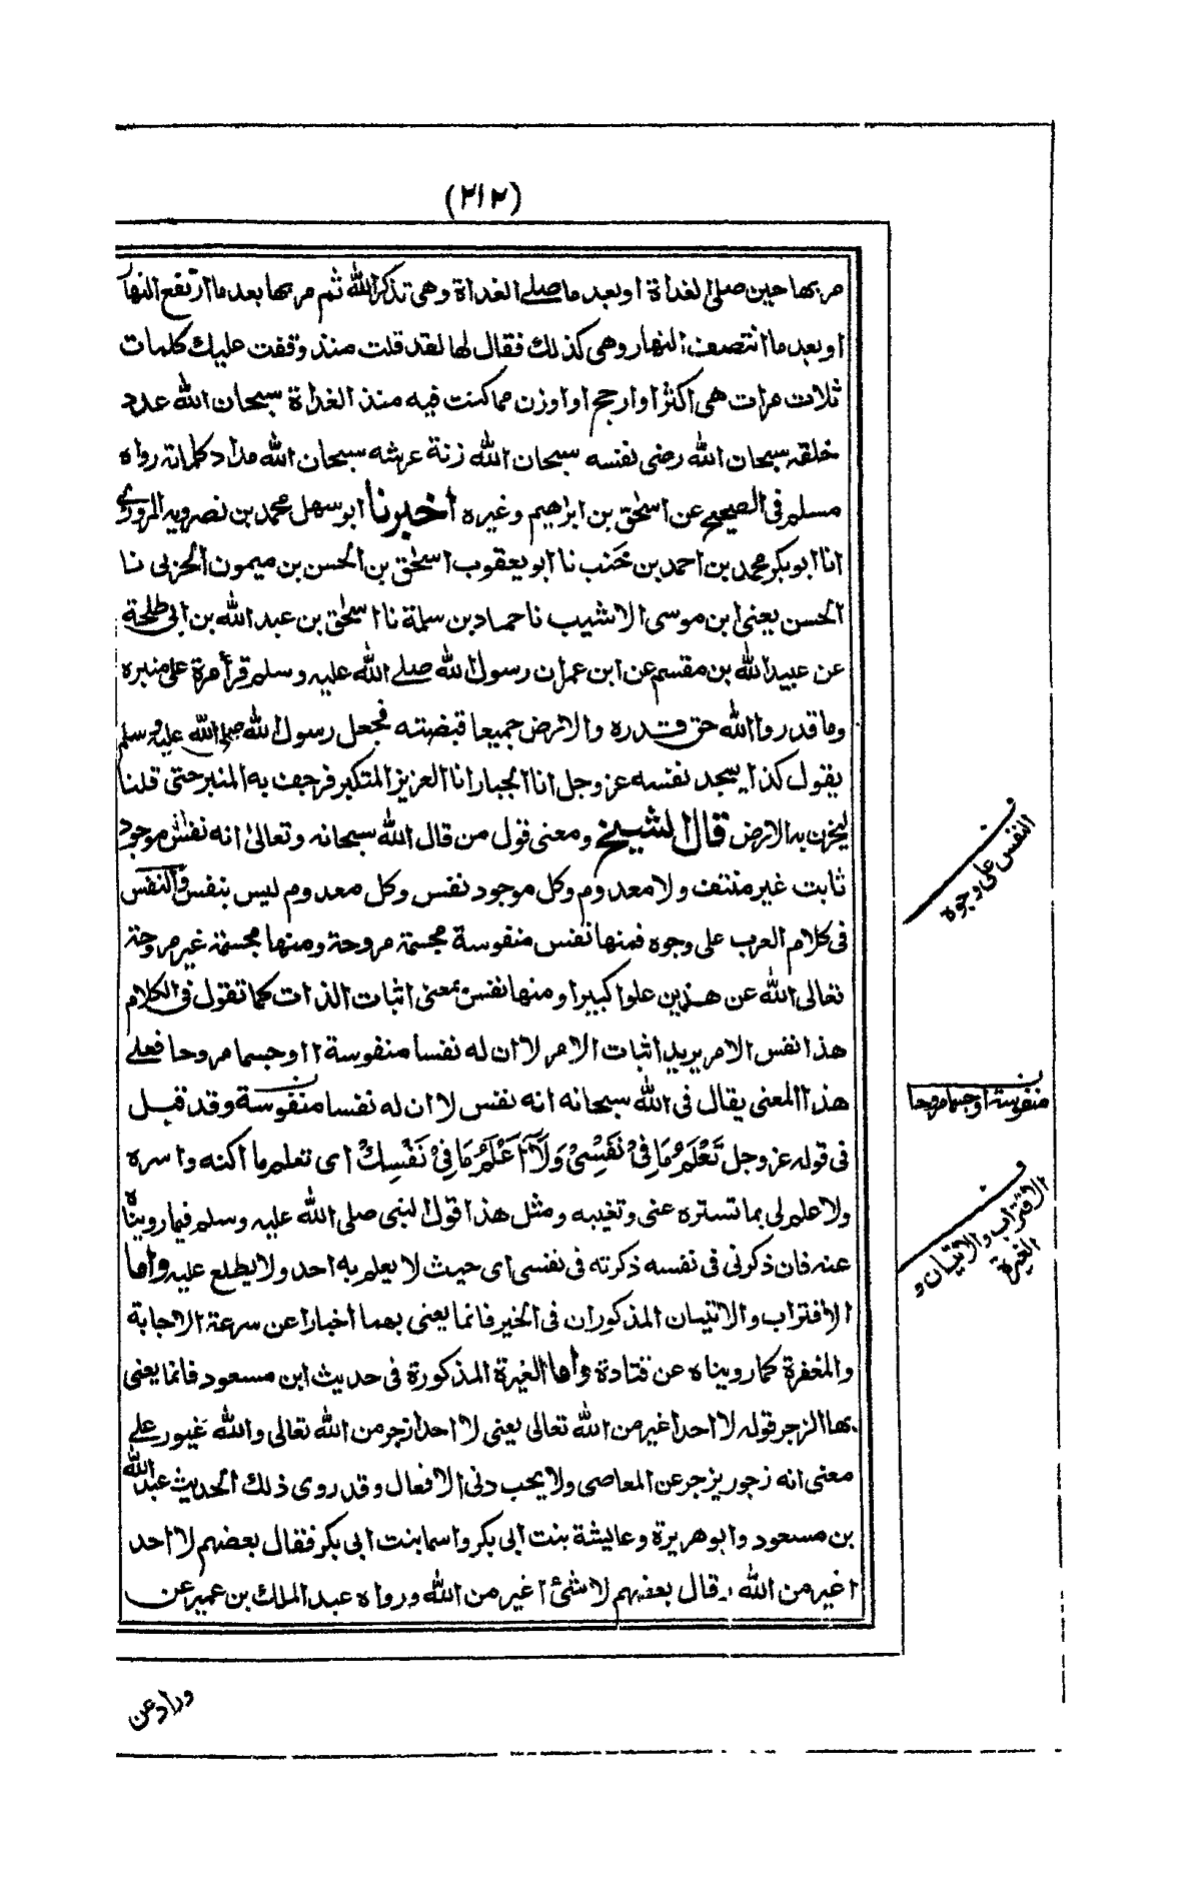 (۲۱۲)
مر بها حين صلى الغداة او بعد ما صلے الغداة وهى تذكر الله ثم مر بها بعد ما ارتفع النها
او بعد ما انتصف النهار وهى كذلك فقال لها لقد قلت منذ وقفت عليك كلمات
ثلاث مرات هى اكثر او ارجح او اوزن مما كنت فيه منذ الغداة سبحان الله عدد
خلقه سبحان الله رضى نفسه سبحان الله زنة عرشه سبحان الله مداد كلماته رواه
مسلم فى الصحيح عن اسحٰق بن ابراهيم وغيره اخبرنا ابو سهل محمد بن نصرويه المروزے
انا ابو بكر محمد بن احمد بن خَنَب نا ابو يعقوب اسحٰق بن الحسن بن ميمون الحربى نا
الحسن يعنى ابن موسى الاشيب نا حماد بن سلمة نا اسحٰق بن عبد الله بن ابى طلحة
عن عبيد الله بن مقسم عن ابن عمر ان رسول الله صلے الله عليه وسلم قرأ مرة على منبره
وما قدروا الله حق قدره والارض جميعا قبضته فجعل رسول الله صلى الله عليه وسلم
يقول كذا يمجد نفسه عز وجل انا الجبار انا العزيز المتكبر فرجف به المنبر حتى قلنا
ليخرن به الارض قال الشيخ ومعنى قول من قال الله سبحانه وتعالىٰ انه نفس انه موجود
ثابت غير منتف ولا معدوم وكل موجود نفس وكل معدوم ليس بنفس والنفس
فى كلام العرب على وجوه فمنها نفس منفوسة مجسمة مروحة ومنها مجسمة غير مروحة
تعالى الله عن هذين علوا كبيرا ومنها نفس بمعنى اثبات الذات كما تقول فى الكلام
هذا نفس الامر يريد اثبات الامر لا ان له نفسا منفوسة ١ او جسما مروحا فعلے
هذا المعنى يقال فى الله سبحانه انه نفس لا ان له نفسا منفوسة وقد قيل
فى قوله عز وجل تَعْلَمُ مَا فِىْ نَفْسِىْ وَلَآ اَعْلَمُ مَا فِىْ نَفْسِكَ اى تعلم ما اكنه واسره
ولا علم لى بما تستره عنى وتغيبه ومثل هذا قول النبى صلى الله عليه وسلم فيما رويناه
عنه فان ذكرنى فى نفسه ذكرته فى نفسى اى حيث لا يعلم به احد ولا يطلع عليه واما
الاقتراب والاتيان المذكوران فى الخبر فانما يعنى بهما اخبارا عن سرعة الاجابة
والمغفرة كما رويناه عن قتادة واما الغيرة المذكورة فى حديث ابن مسعود فانما يعنى
بها الزجر قوله لا احد اغير من الله تعالى يعنى لا احد ازجر من الله تعالى والله غَيور علے
معنى انه زجور يزجر عن المعاصى ولا يحب دنى الافعال وقد روى ذلك الحديث عبد الله
بن مسعود وابو هريرة وعايشة بنت ابى بكر واسما بنت ابى بكر فقال بعضهم لا احد
اغير من الله وقال بعضهم لا شئ اغير من الله ورواه عبد الملك بن عمير عن
وراد عن
ف
النفس على وجوه
ن
منفوسة او جسما مروحا
ف
الاقتراب والاتيان و
الغيرة